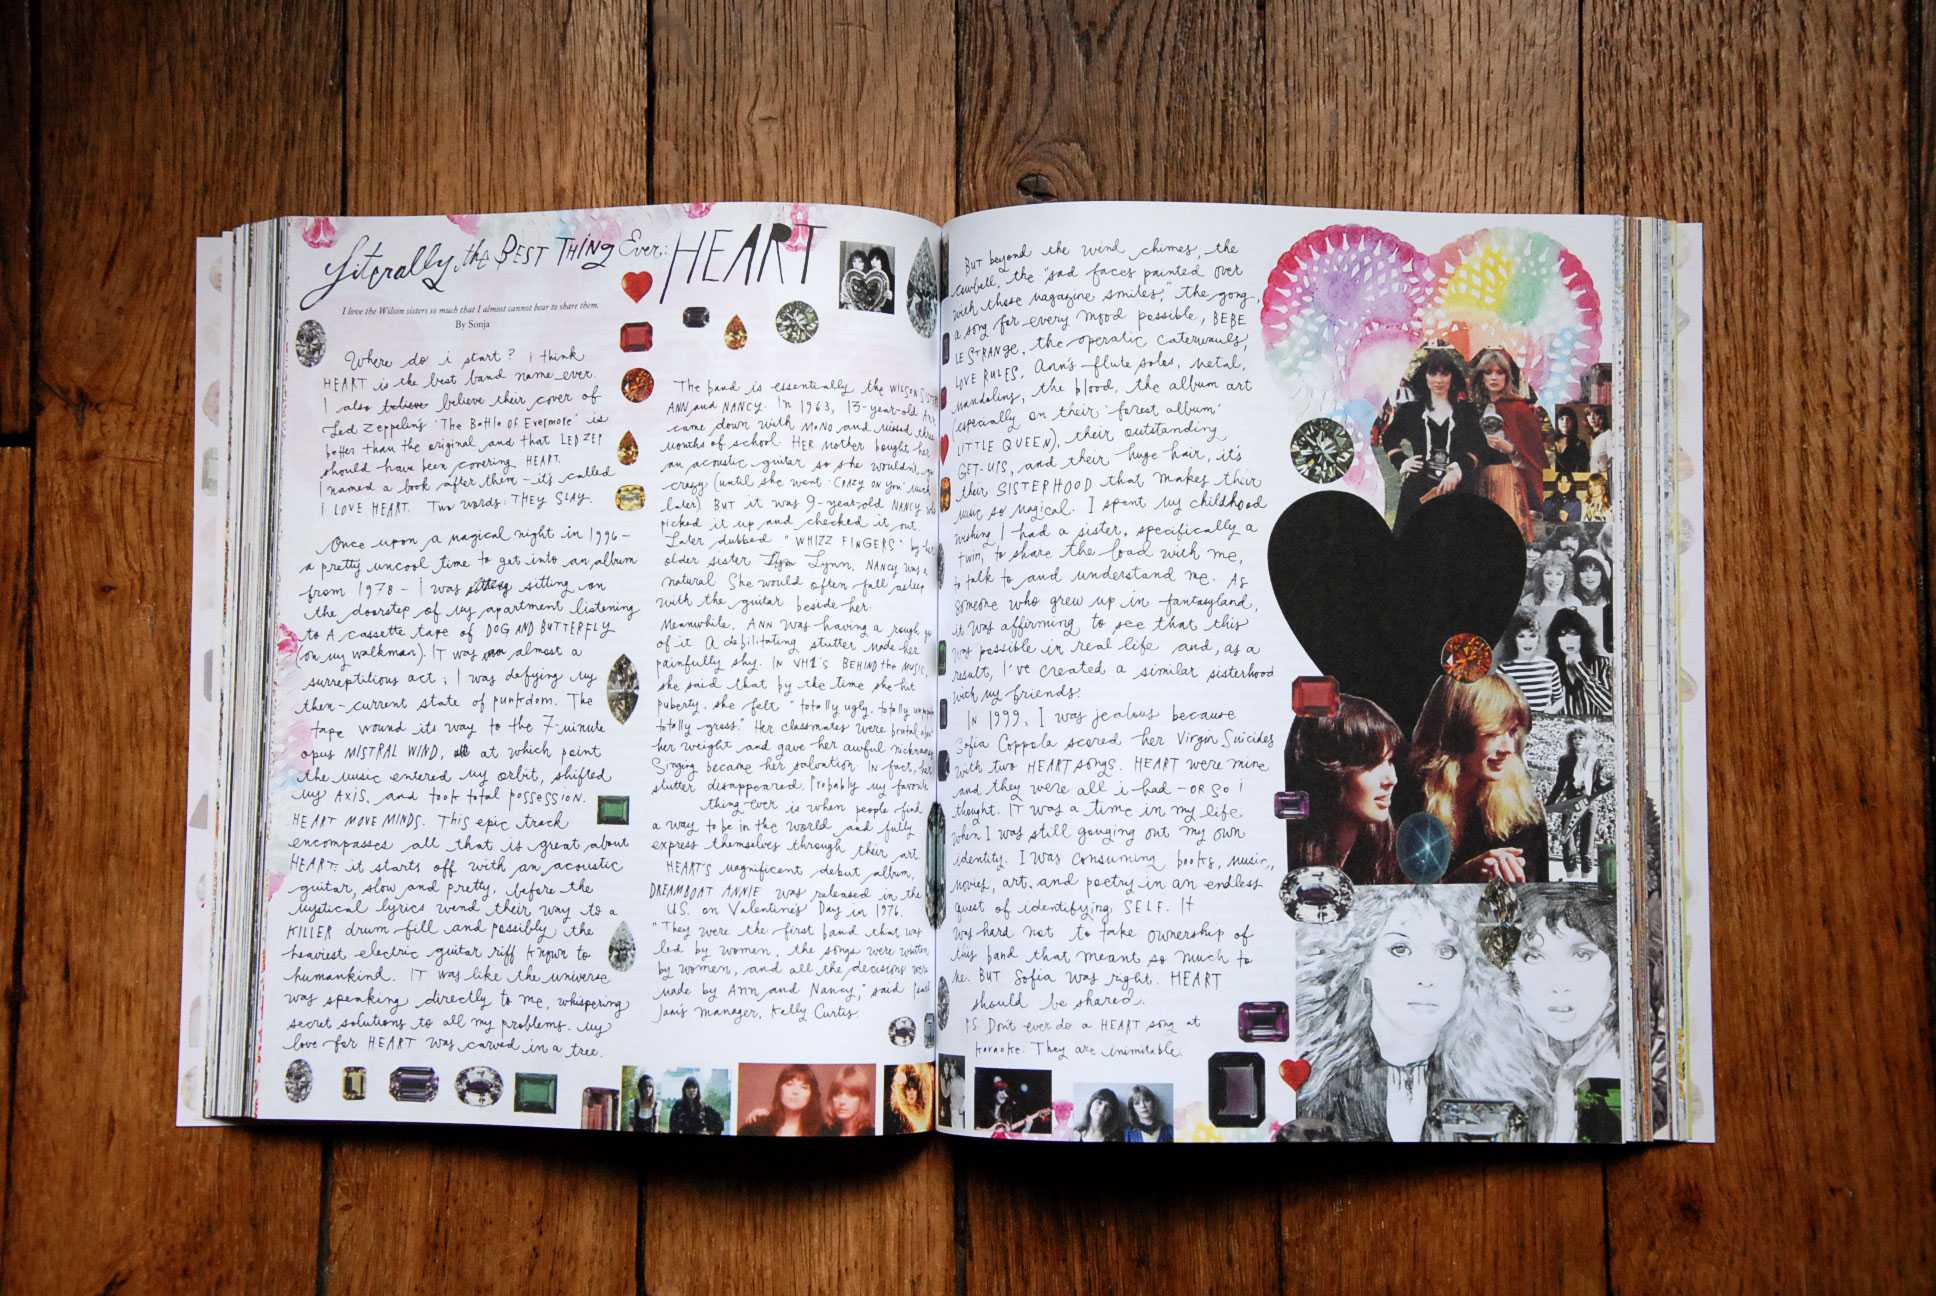 Literally the BEST THING Ever: HEART
I love the Wilson sisters so much that I almost cannot bear to share them.
By Sonja
Where do i start? i think
HEART is the best band name ever.
I also believe believe their cover of
Led Zeppelin's 'The Battle of Evermore' is
better than the original and that LED ZEP
should have been covering HEART.
I named a book after them – it's called
I LOVE HEART. Two words: THEY SLAY.
Once upon a magical night in 1996 –
a pretty uncool time to get into an album
from 1978 – I was sitting on
the doorstep of my apartment listening
to A cassette tape of DOG AND BUTTERFLY
(on my walkman). IT was almost a
surreptitious act; I was defying my
then-current state of punkdom. The
tape wound its way to the 7-minute
opus MISTRAL WIND, at which point
the music entered my orbit, shifted
my AXIS, and took total possession.
HEART MOVE MINDS. THIS epic track
encompasses all that is great about
HEART: it starts off with an acoustic
guitar, slow and pretty, before the
mystical lyrics wend their way to a
KILLER drum fill and possibly the
heaviest electric guitar riff known to
humankind. IT was like the universe
was speaking directly to me, whispering
secret solutions to all my problems. My
love for HEART was carved in a tree.
The band is essentially the WILSON
ANN and NANCY. In 1963, 13-year-old Ann
came down with MONO and missed three
months of school. HER mother bought her
an acoustic guitar so she wouldn't go
crazy (until she went 'CRAZY ON YOU' much
later) BUT it was 9-year-old NANCY who
picked it up and checked it out.
Later dubbed "WHIZZ FINGERS" by her
older sister Lynn, NANCY was a
natural She would often fall asleep
with the guitar beside her.
Meanwhile, ANN was having a rough go
of it A debilitating stutter made her
painfully shy. IN VH1'S BEHIND the MUSIC,
she said that by the time she hit
puberty, she felt "totally ugly, totally
totally gross." Her classmates were brutal about
her weight and gave her awful nicknames
Singing became her salvation IN fact, her
stutter disappeared. Probably my favorite
thing ever is when people find
a way to be in the world and fully
express themselves through their art.
HEART'S magnificent debut album,
DREAMBOAT ANNIE was released in the
U.S. on Valentine's Day in 1976.
"They were the first band that was
led by women, the songs were written
by women, and all the decisions were
made by Ann and Nancy," said
manager, Kelly Curtis.
BUT beyond the wind chimes, the
cowbell, the "sad faces painted over
with those magazine smiles," the gong,
a song for every mood possible, BEBE
LE STRANGE, the operatic caterwauls,
LOVE RULES, Ann's flute solos, metal,
mandolins, the blood, the album art
(especially on their 'forest album'
LITTLE QUEEN), their outstanding
GET-UPS, and their huge hair, it's
their SISTERHOOD that makes their
music so magical. I spent my childhood
wishing I had a sister, specifically a
twin, to share the load with me,
to talk to and understand me. As
someone who grew up in fantasyland,
it was affirming to see that this
was possible in real life and, as a
result, I've created a similar sisterhood
with my friends.
IN 1999, I was jealous because
Sofia Coppola scored her Virgin Suicides
with two HEART songs. HEART were mine
and they were all i had – OR SO I
thought. IT was a time in my life
when I was still gouging out my own
identity. I was consuming books, music,
movies, art, and poetry in an endless
quest of identifying SELF. It
was hard not to take ownership of
this band that meant so much to
me. BUT Sofia was right. HEART
should be shared.
PS Don't ever do a HEART song at
karaoke. They are inimitable.